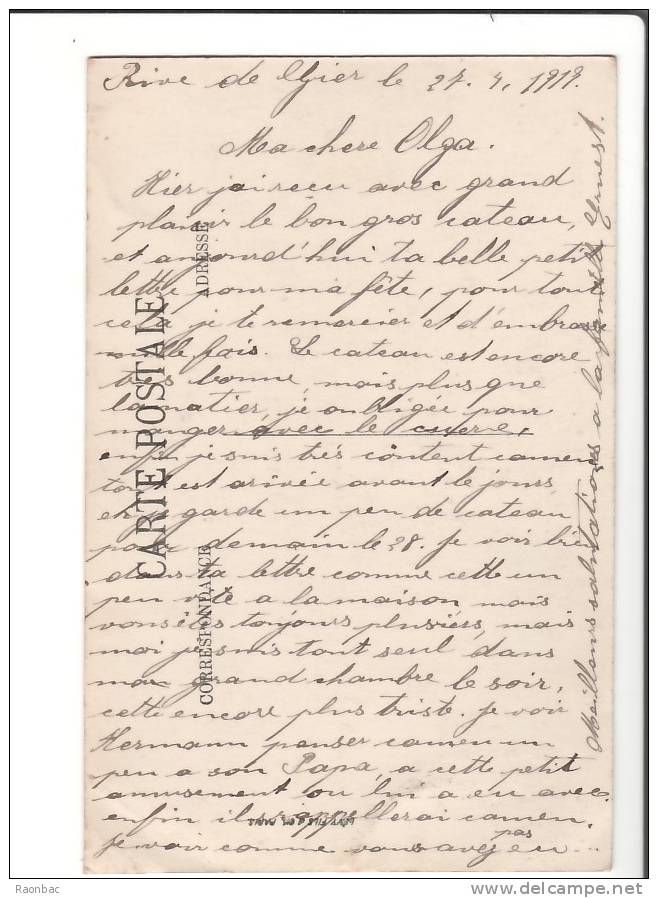 Rive de Gier le 27. 4. 1918.
Ma chere Olga.
Hier j'ai reçu avec grand
plaisir le bon gros cateau,
et aujourd'hui ta belle petit
lettre pour ma fête, pour tout
cela je te remercier et d'embrasse
mille fois. Le cateau est encore
très bonne, mais plus que
la matier, je obligée pour
manger avec le cuerre,
enfin je suis très content camem
tout est arrivée avant le jours
et je garde un peu de cateau
pour demain le 28. Je voir bien
dans ta lettre comme cette un
peu vite a la maison mais
vous êtes toujours plusiers, mais
moi je suis tout seul dans
grand chambre le soir,
cette encore plus triste. Je voir
Hermann penser camem un
peu a son Papa, a cette petit
amusement ou lui a eu avec
enfin il rappellerai camem.
Je voir comme vous avez pas eu...
Meilleurs salutations a la famille Ernest.
CARTE POSTALE
CORRESPONDANCE
ADRESSE
Raonbac
delcampe.net